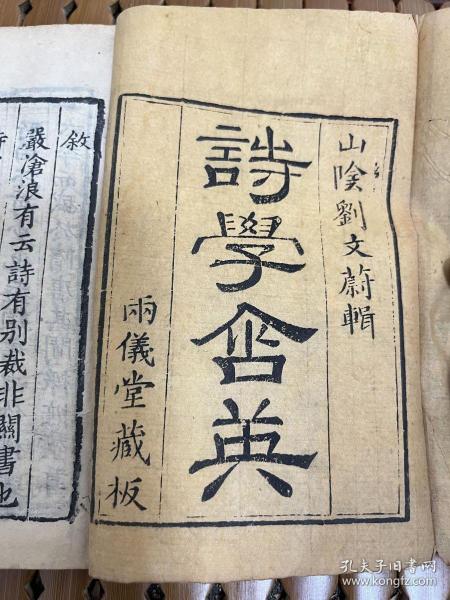 山陰劉文蔚輯
詩學含英
兩儀堂藏板
敘
嚴滄浪有云詩有别裁非關書也
孔夫子旧书网
www.kongfz.com